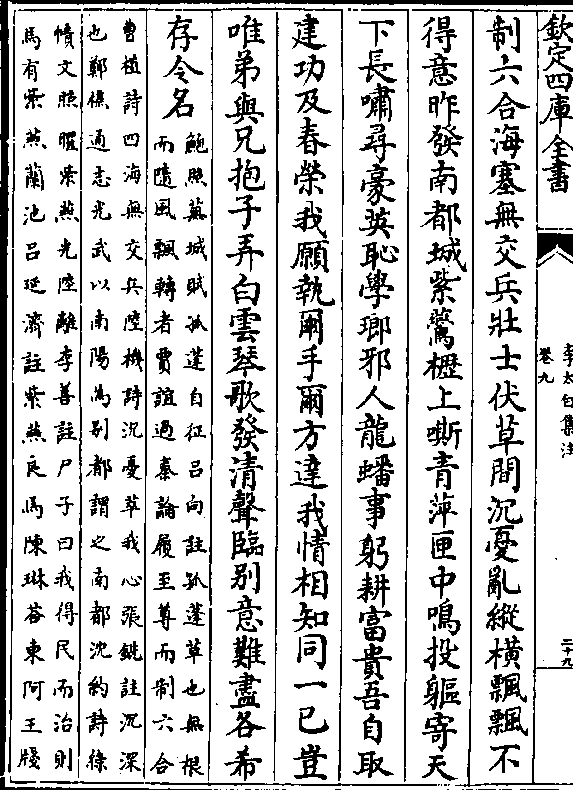 欽定四庫全書
李太白集注
卷九
二十九
制六合海塞無交兵壯士伏草間沉憂亂縱橫飄飄不
得意昨發南都城紫鷰櫪上嘶青萍匣中鳴投軀寄天
下長嘯尋豪英恥學瑯邪人龍蟠事躬耕富貴吾自取
建功及春榮我願執爾手爾方達我情相知同一己豈
唯弟與兄抱子弄白雲琴歌發清聲臨别意難盡各希
存令名
鮑照蕪城賦孤蓬自征吕向註孤蓬草也無根
而隨風飄轉者賈誼過秦論履至尊而制六合
曹植詩四海無交兵陸機詩沉憂萃我心張銑註沉深
也鄭樵通志光武以南陽為别都謂之南都沈約詩緑
幘文照曜紫燕光陸離李善註尸子曰我得民而治則
馬有紫燕蘭池吕延濟註紫燕良馬陳琳荅東阿王牋